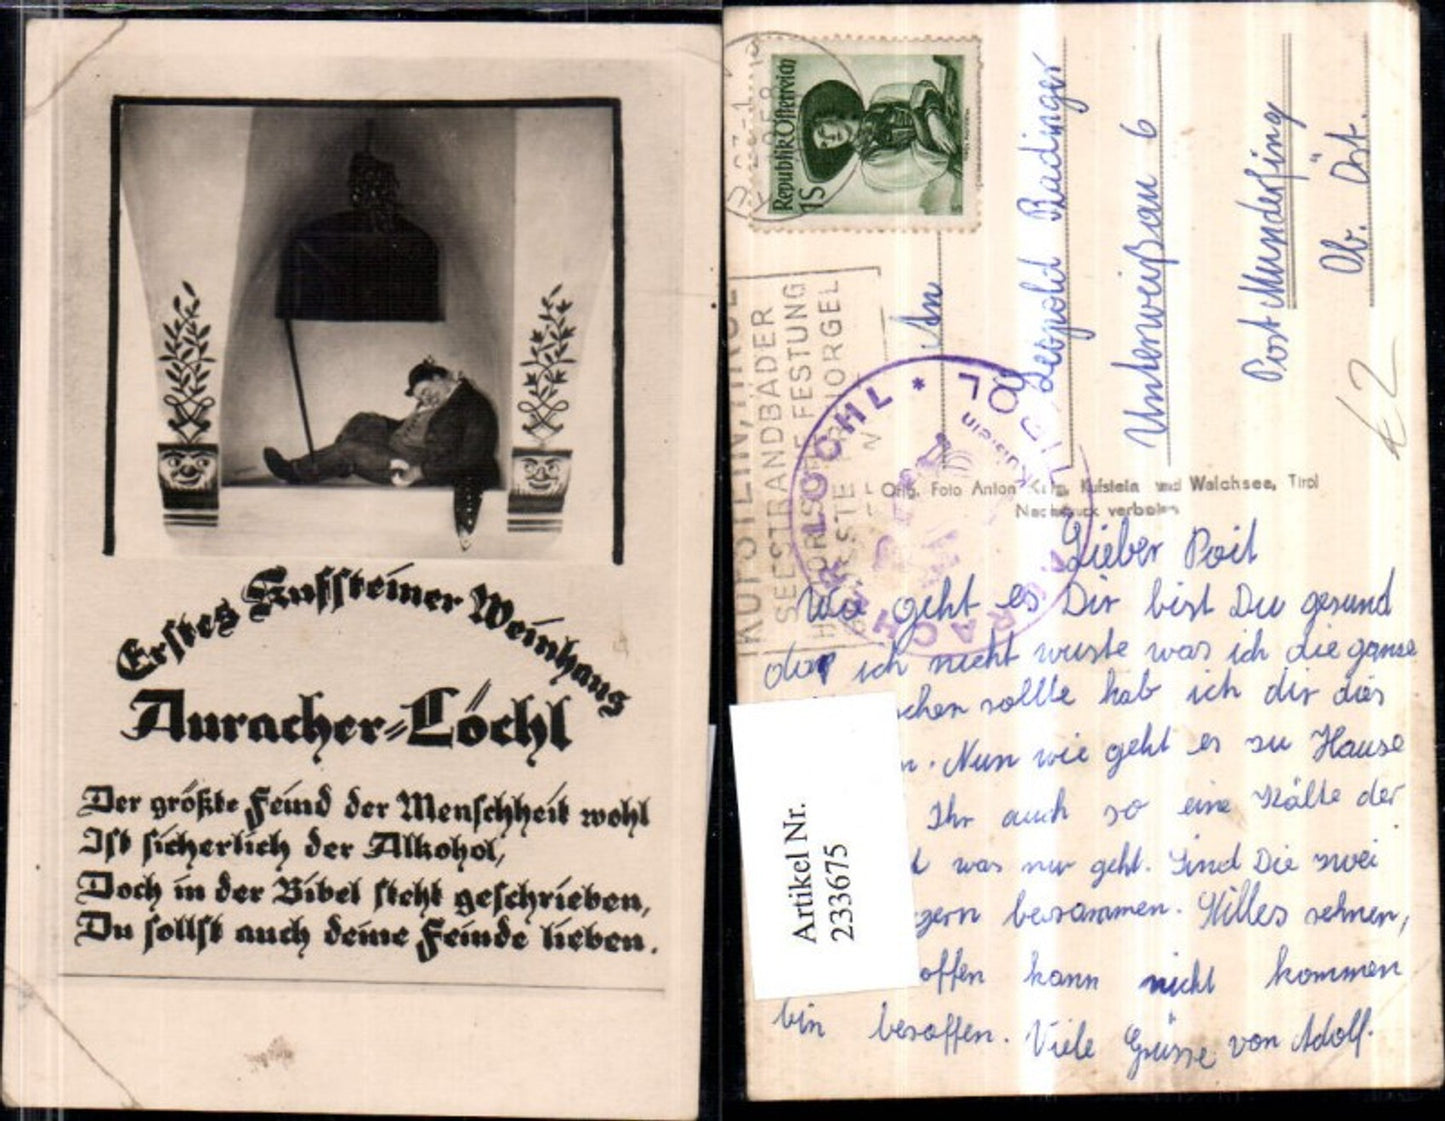 Erstes Kufsteiner Weinhaus
Auracher-Löchl
Der größte Feind der Menschheit wohl
Ist sicherlich der Alkohol,
Doch in der Bibel steht geschrieben,
Du sollst auch deine Feinde lieben.
Republik Österreich
1S
KUFSTEIN, TIROL
SEESTRANDBÄDER
FESTUNG
LÖCHL *
Kufstein
An
Leopold Badinger
Unterweißau 6
Post Munderfing
Ob. Öst.
€ 2
Orig. Foto Anton Kufstein und Walchsee, Tirol
Nachdruck verboten
Lieber Poit
Wie geht es Dir bist Du gesund
da ich nicht wuste was ich die ganse
sollte hab ich dir dies
Nun wie geht es su Hause
Ihr auch so eine Kälte der
was nur geht. Sind Die swei
besammen. Stilles sehnen,
offen kann nicht kommen
bin besoffen. Viele Grüsse von Adolf.
Artikel Nr.
233675